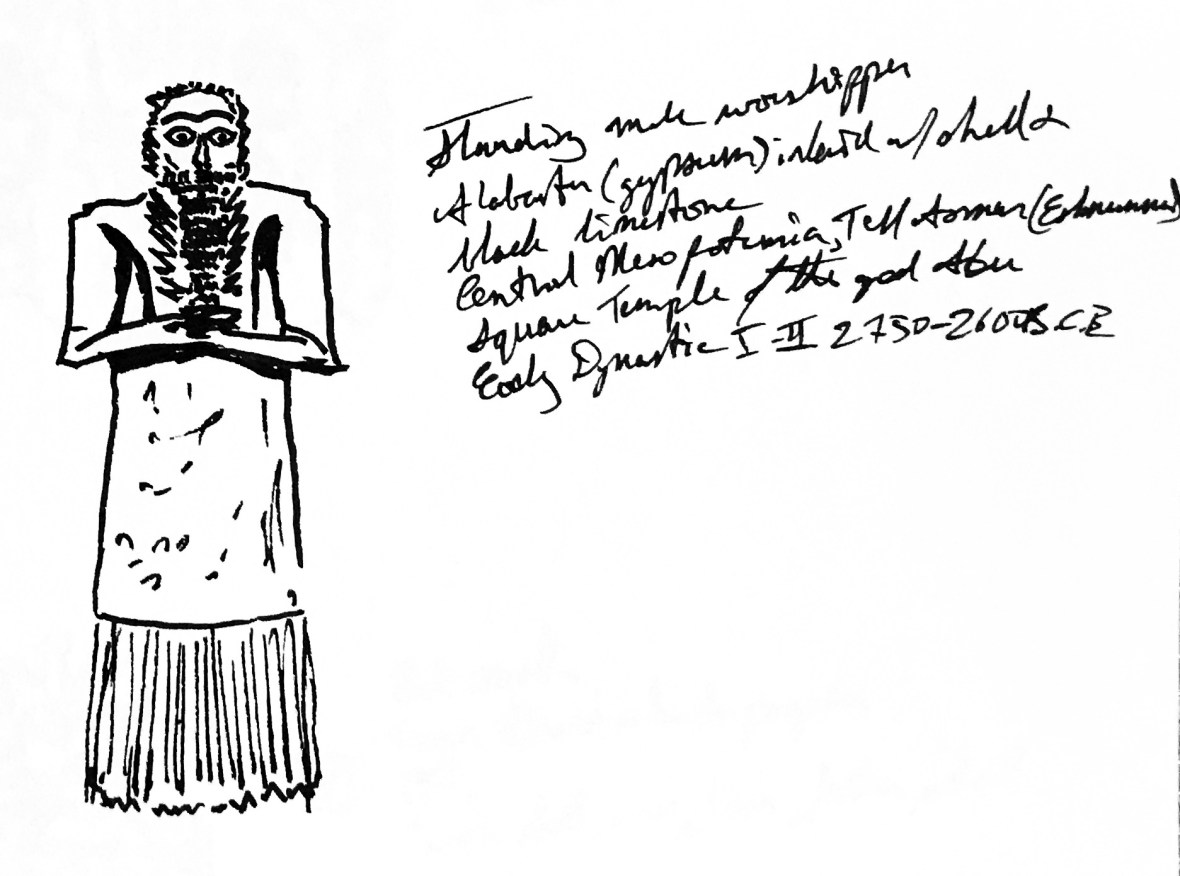 Standing male worshipper
Alabaster (gypsum) inlaid w/ shell &
black limestone
Central Mesopotamia, Tell Asmar (Eshnunna)
Square Temple of the god Abu
Early Dynastic I-II 2750-2600 B.C.E